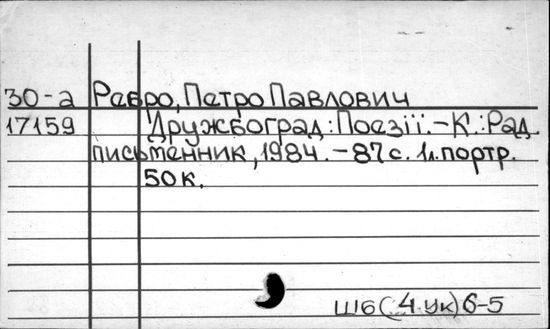 30-а Ребро, Петро Павлович
17159 Дружбоград: Поезії. - К.: Рад.
письменник, 1984. - 87 с. 1л. портр.
50 к.
Ш6(4 Ук)6-5